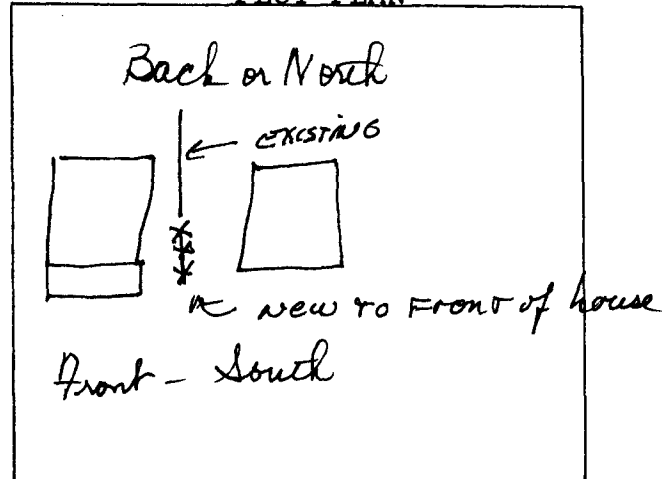 PLOT PLAN
Back or North
EXISTING
New to Front of house
Front - South